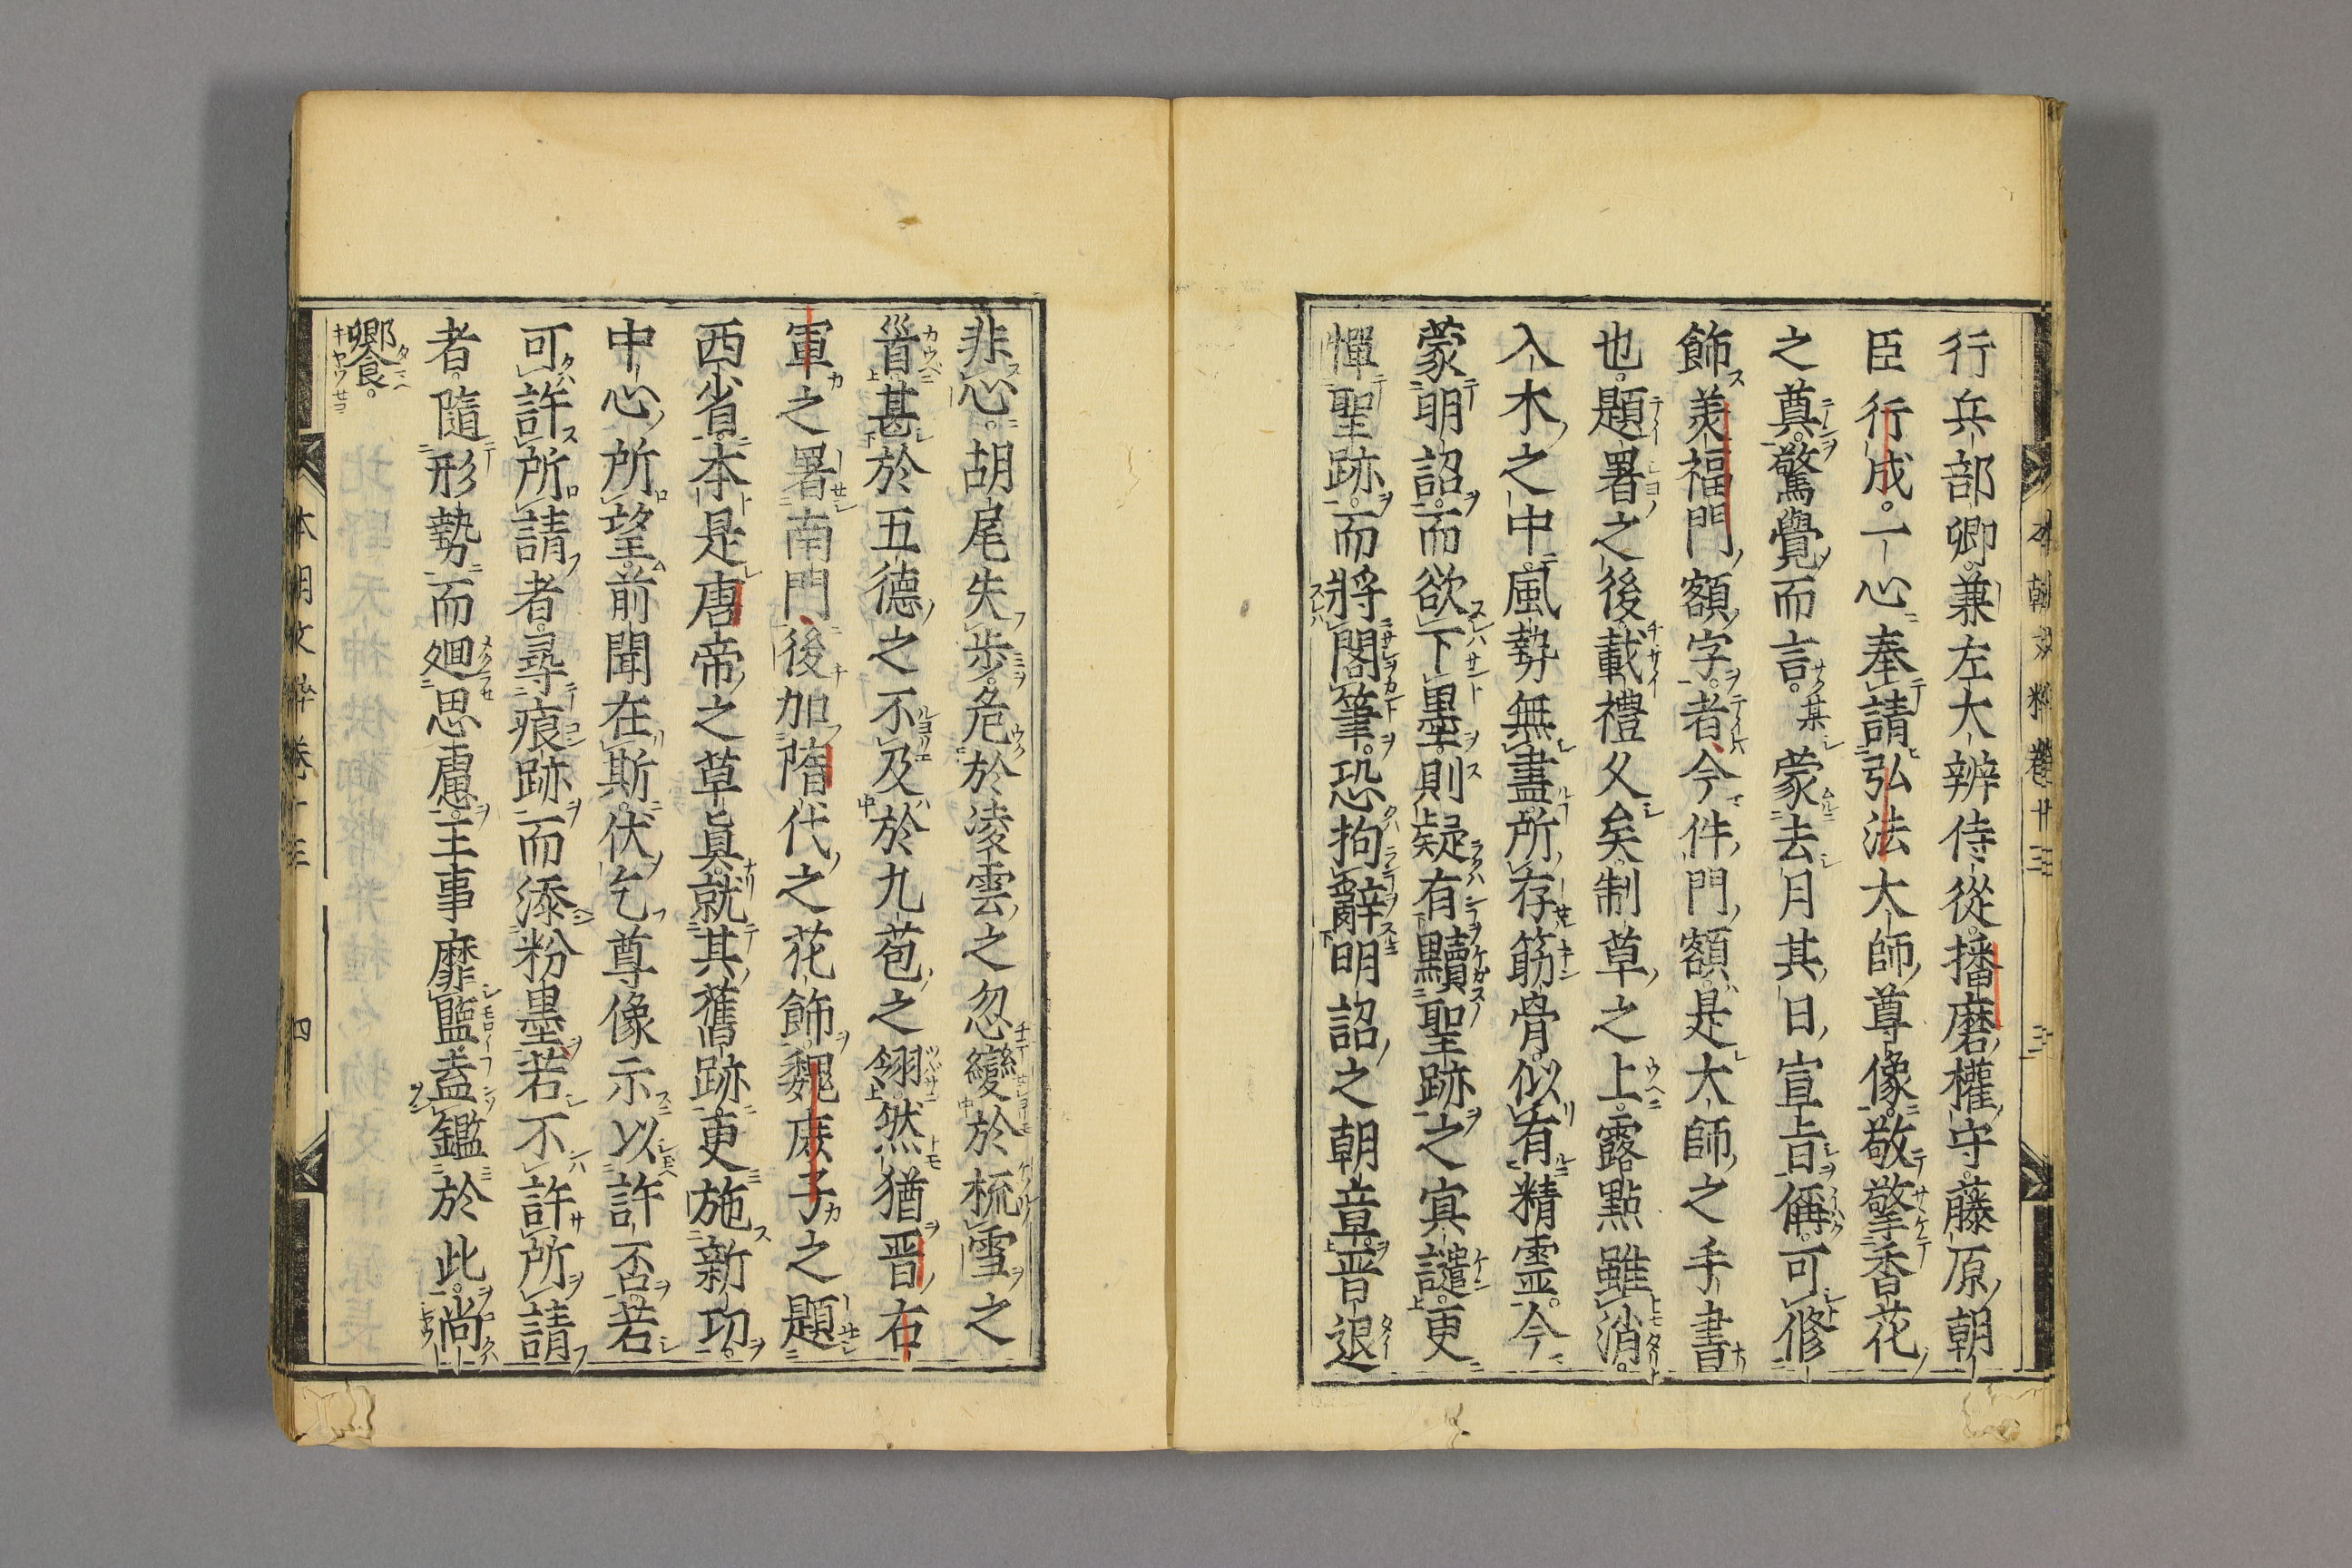 行兵部卿。兼左大辨侍從。播磨權守。藤原朝
臣行成。一心奉請弘法大師尊像。敬擎香花
之奠。驚覺而言。某蒙去月其日宣旨偁。可修
飾美福門額字。者、今件門額。是大師之手書
也。題署之後。載禮久矣。制草之上。露點雖消。
入木之中。風勢無盡。所存筋骨。似有精霊。今
蒙明詔。而欲下墨。則疑有黷聖跡之寘譴。更
憚聖跡。而將閣筆。恐拘辭明詔之朝章。晋退
非心。胡尾失歩。危於凌雲之忽變於梳雪之
首。甚於五德之不及於九苞之翎。然猶晋右
軍之署南門、後加隋代之花飾。魏庚子之題
西省。本是唐帝之草眞。就其舊跡。更施新功。
中心所望。前聞在斯。伏乞尊像示以許否。若
可許所請者。尋痕跡而添粉墨。若不許所請
者。隨形勢而廻思慮。王事靡盬。盍鑑於此。尚
饗。
本朝文粹卷十三
三
四